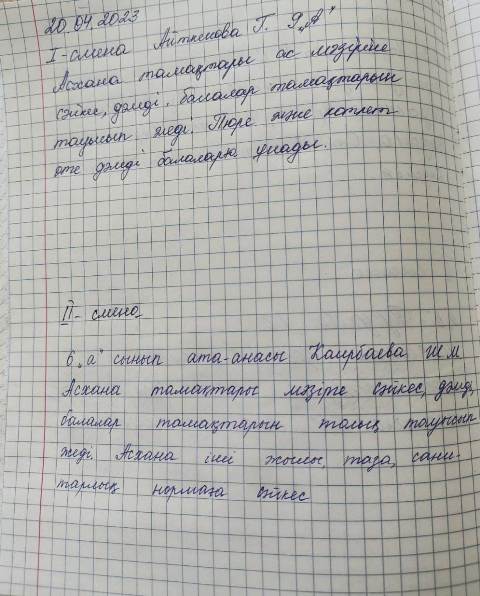 20.04.2023
I-смена Айткенова Г. 9 „А"
Асхана тамақтары ас мәзіріне
сәйкес, дәмді, балалар тамақтарын
тауысып жеді. Пюре және котлет
өте дәмді балаларға ұнады.
II- смена
6 „а" сынып ата-анасы Каирбаева Ж М
Асхана тамақтары мәзірге сәйкес, дәмді,
балалар тамақтарын толық тауысып
жеді. Асхана іші жылы, таза, сани-
тарлық нормаға сәйкес